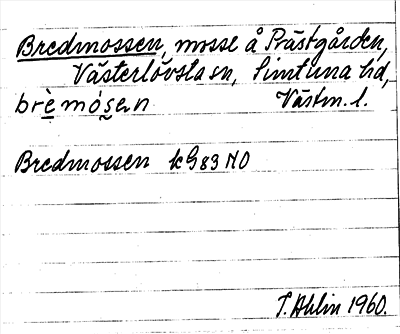 Bredmossen, mosse å Prästgården,
Västerlövsta sn, Simtuna hd,
brèmósen Västm. l.
Bredmossen kG83 NO
T. Ahlin 1960.